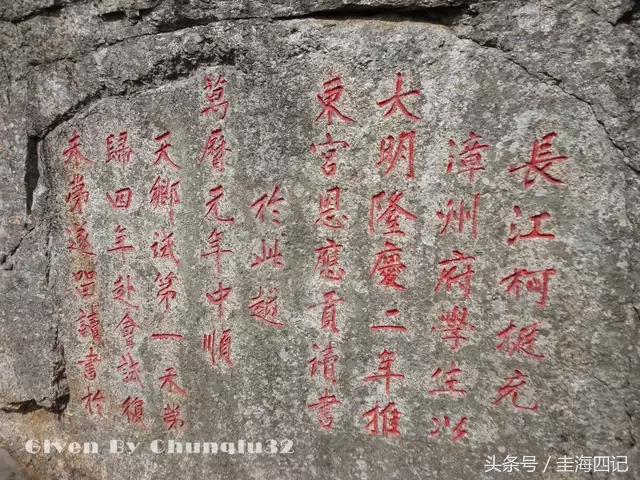 長江柯挺充
漳州府學生以
大明隆慶二年推
東宮恩應貢讀書
於此越
萬曆元年中順
天鄉試第一禾第
歸四年赴會試復
禾第遂留讀書於
Given By Chunqlu32
头条号/圭海四记